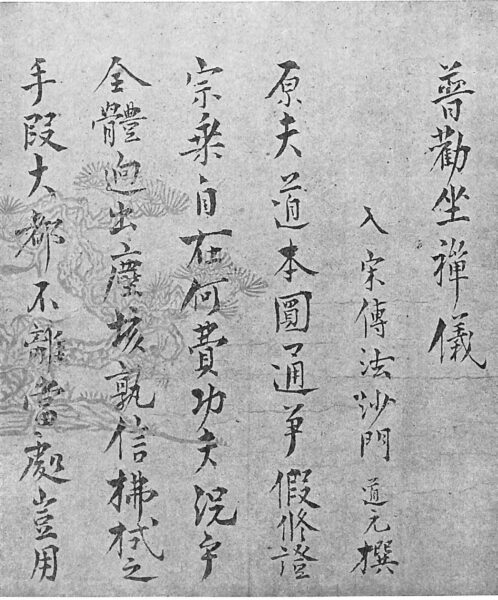 普勸坐禪儀
入宋傳法沙門道元撰
原夫道本圓通爭假修證
宗乗自在何費功夫況乎
全體逈出塵埃孰信拂拭之
手段大都不離當處豈用